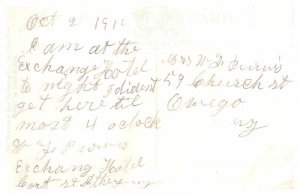 Oct 2 1910
I am at the
Exchange Hotel
to night I dident
get here til
most 4 oclock
W F Purvis
Exchang Hotel
Cort st
Mrs W F Purvis
59 Church st
Owego
ny